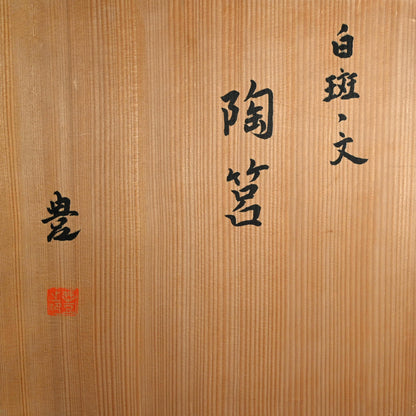 白斑、文
陶筥
豊